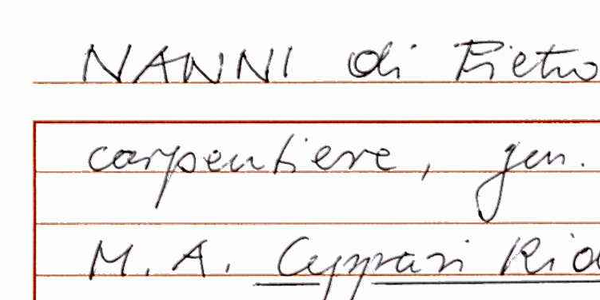 NANNI di Pietro
carpentiere, gen.
M. A. Ceppari Rid